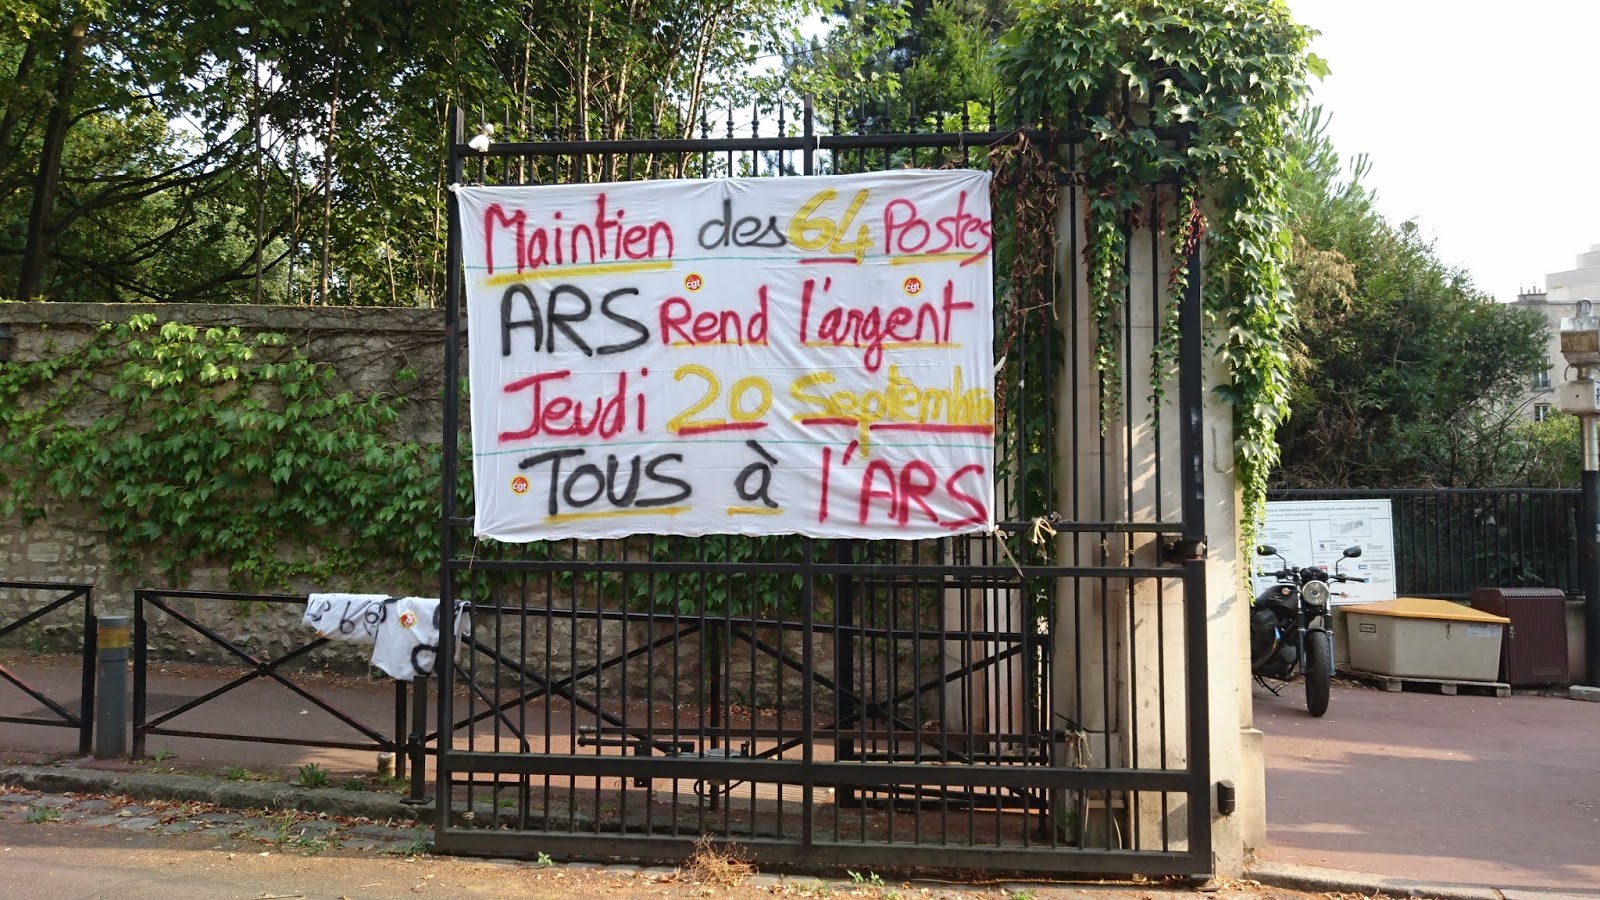 Maintien des 64 Postes
cgt cgt
ARS Rend l'argent
Jeudi 20 Septembre
cgt
TOUS à l'ARS